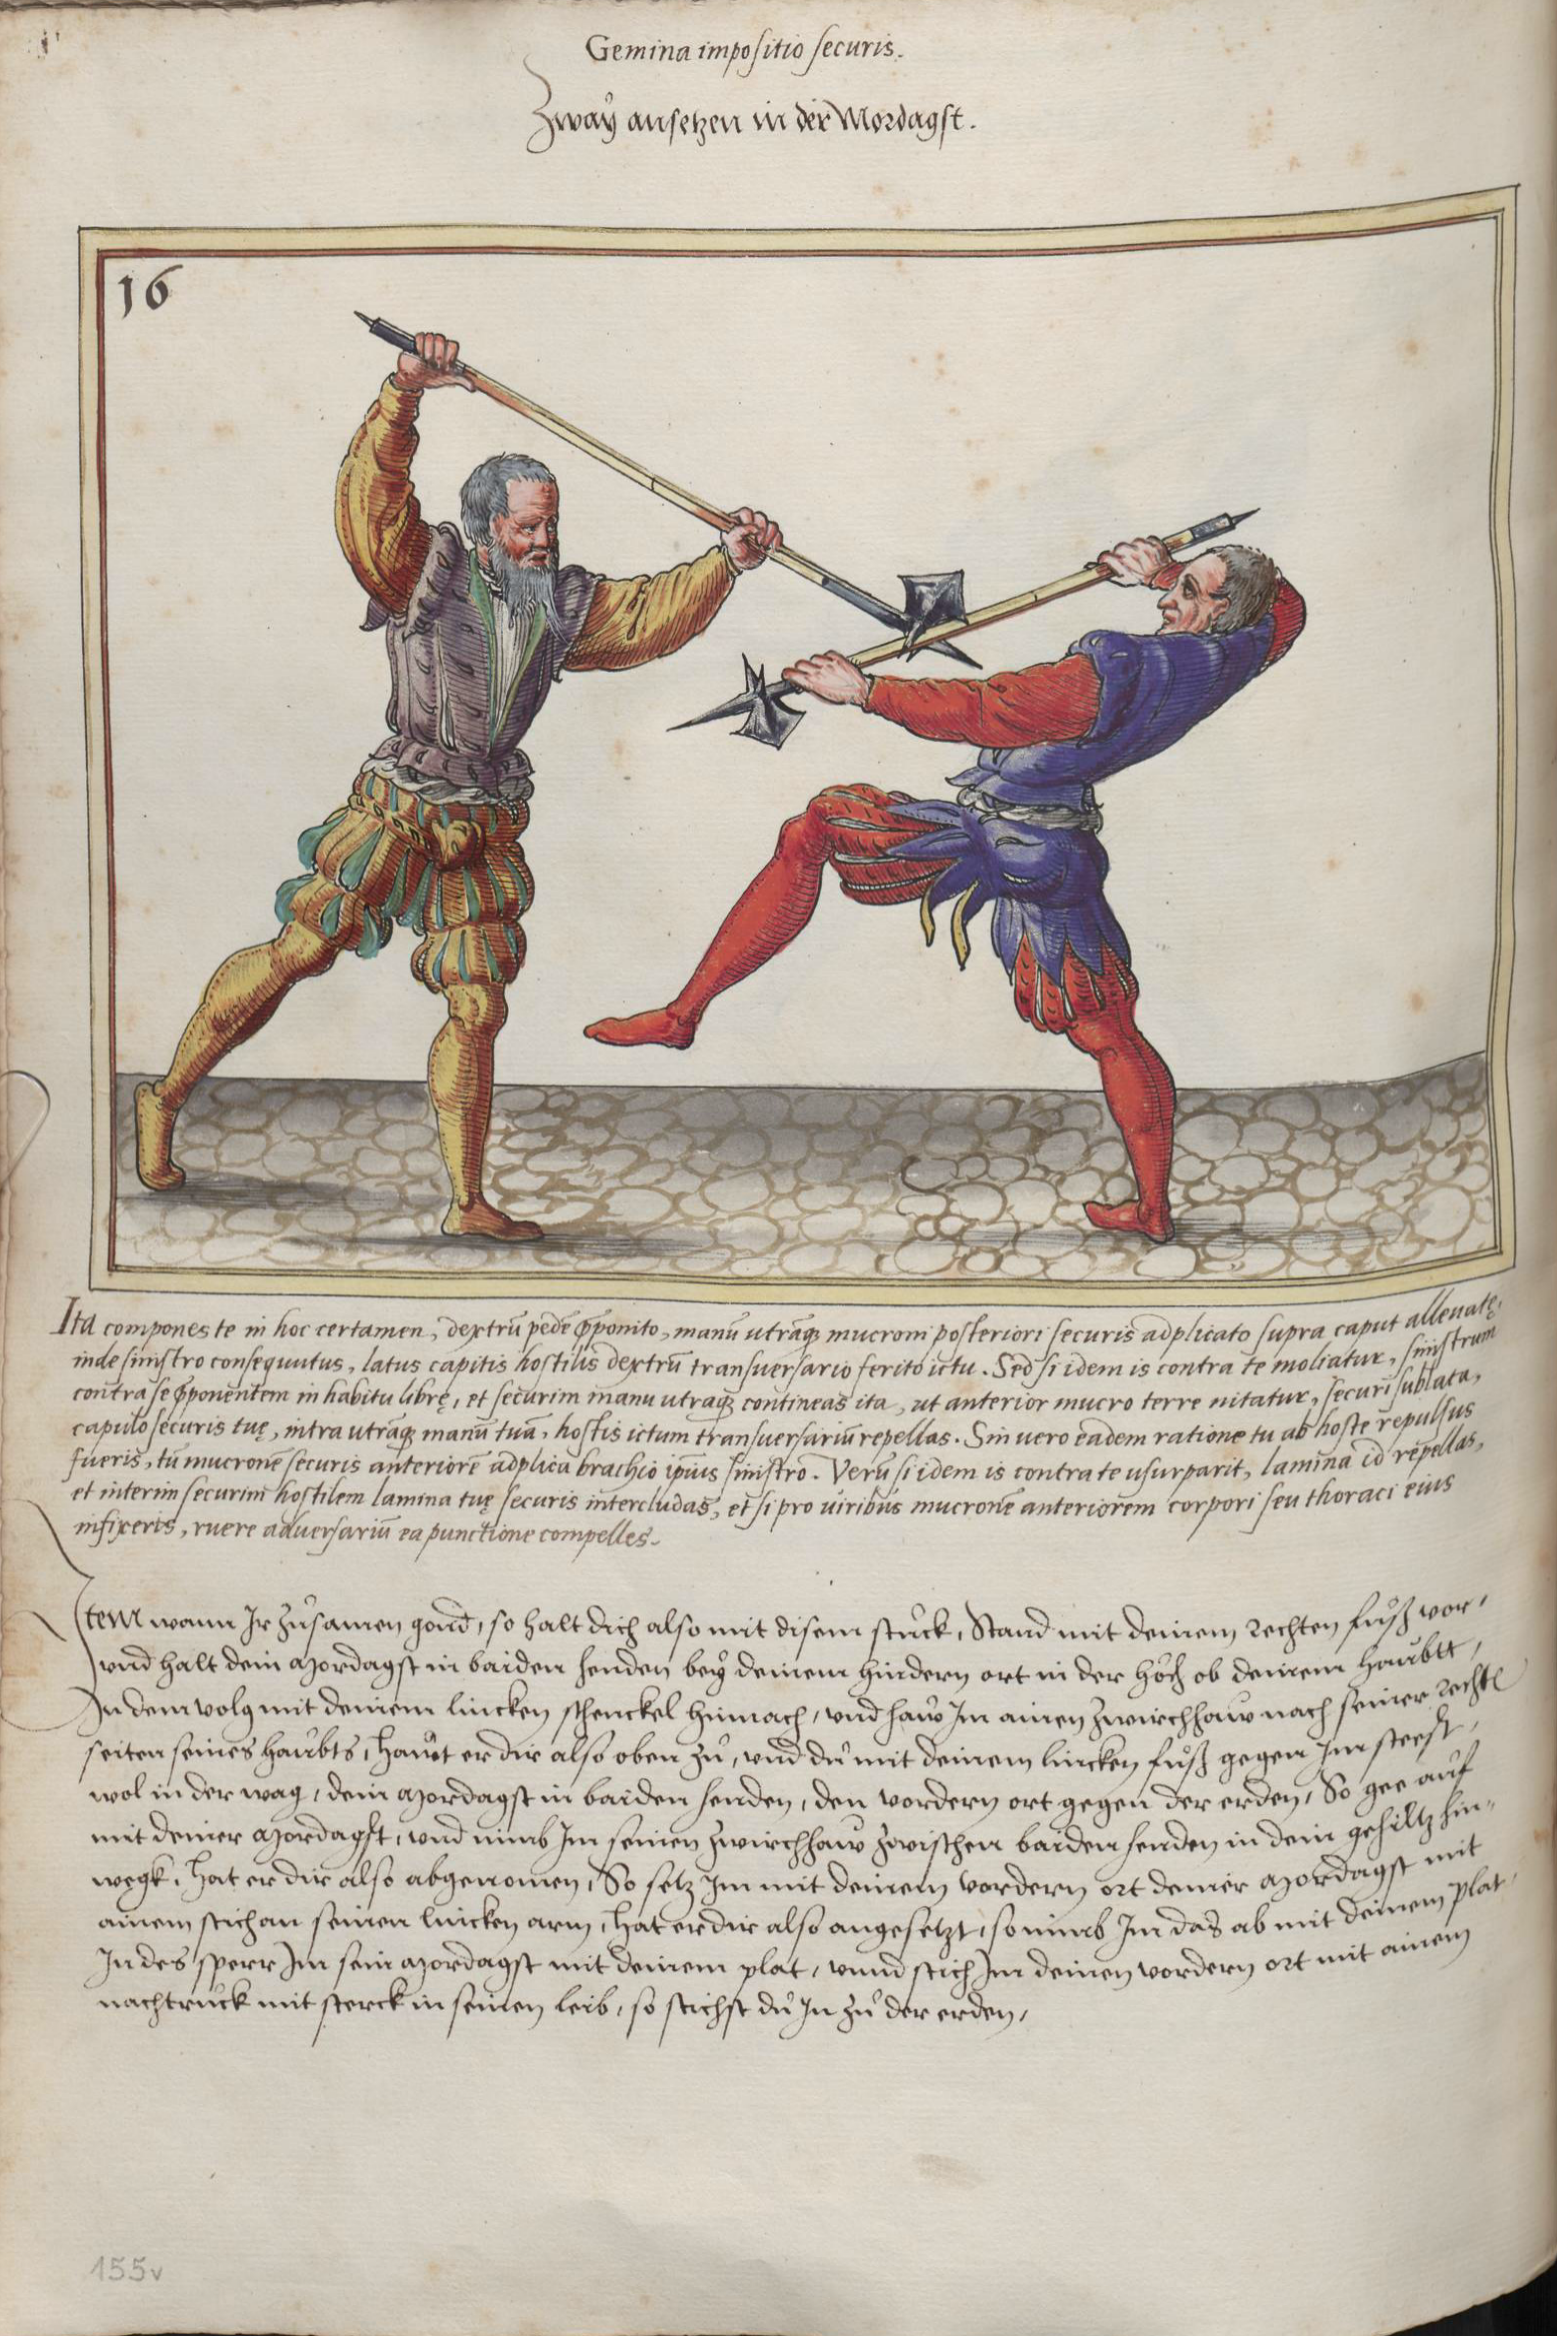 Gemina impositio securis.
Zwaÿ ansetzen in der Mordagst.
16
Ita compones te in hoc certamen, dextrũ pedẽ ꝓponito, manũ utrãq; mucroni posteriori securis adplicato supra caput alleuatę,
inde sinistro consequutus, latus capitis hostilis dextrũ transuersario ferito ictu. Sed si idem is contra te moliatur, sinistrum
contra se ꝓponentem in habitu librę, et securim manu utraq; contineas ita, ut anterior mucro terre nitatur, securi sublata,
capulo securis tuę, intra utrãq; manũ tuã, hostis ictum transuersariũ repellas. Sin uero eadem ratione tu ab hoste repulsus
fueris, tũ mucronẽ securis anteriorẽ adplica brachio ipsius sinistro. Verũ si idem is contra te usurparit, lamina id repellas,
et interim securim hostilem lamina tuę securis intercludas, et si pro uiribus mucronẽ anteriorem corpori seu thoraci eius
infixeris, ruere aduersariũ ea punctione compelles.
Item wann Ir zůsamen gond, so halt dich also mit disem stuck, Stand mit deinem rechten fůß vor,
vnd halt dein Mordagst in baiden henden beÿ deinem hindern ort in der höch ob deinem haubtt,
In dem volg mit deinem lincken schenckel hinnach, vnd haw Im ainen zwirchhaw nach seiner rechtẽ
seiten seines haubts, hawt er dir also oben zů, vnd dů mit deinem lincken fůß gegen Im steest,
wol in der wag, dein Mordagst in baiden henden, den vordern ort gegen der erden, So gee auf
mit deiner Mordagst, vnd nimb Im seinen zwirchhaw zwischen baiden henden in dein gehiltz hin-
wegk, hat er dir also abgenomen, So setz Im mit deinem vordern ort deiner Mordagst mit
ainem stich an seinen lincken arm, hat er dir also angesetzt, so nimb Im das ab mit deinem plat,
In des sperr Im sein Mordagst mit deinem plat, vnnd stich Im deinen vordern ort mit ainem
nachtruck mit sterck in seinen leib, so stichst dů In zů der erden,
155v